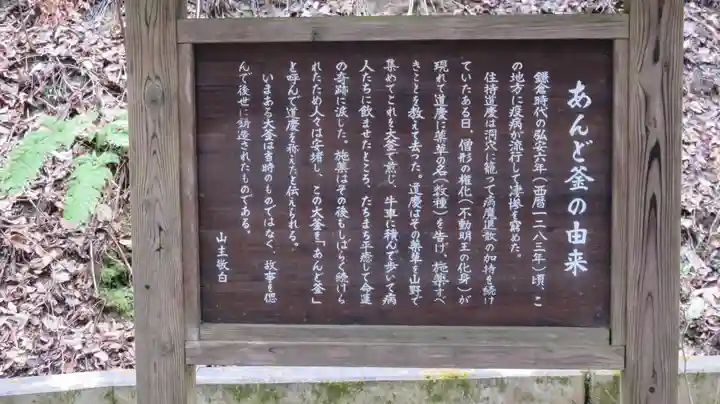 あんど釜の由来
鎌倉時代の弘安六年(西暦一二八三年)頃、こ
の地方に疫病が流行して凄惨を窮めた。
住持道慶は洞穴に籠って病魔退散の加持を続け
ていたある日、僧形の権化(不動明王の化身)が
現れて道慶に薬草の名(数種)を告げ、施薬すべ
きことを教えて去った。道慶はその薬草を山野で
集めてこれを大釜で煎じ、牛車に積んで歩して病
人たちに飲ませたところ、たちまち平癒して命運
の奇跡に浴した。施薬はその後もしばらく続けら
れたため人々は安堵し、この大釜を「あんど釜」
と呼んで道慶を称えたと伝えられる。
いまある大釜は当時のものではなく、故事を偲
んで後世に鋳造されたものである。
山主敬白